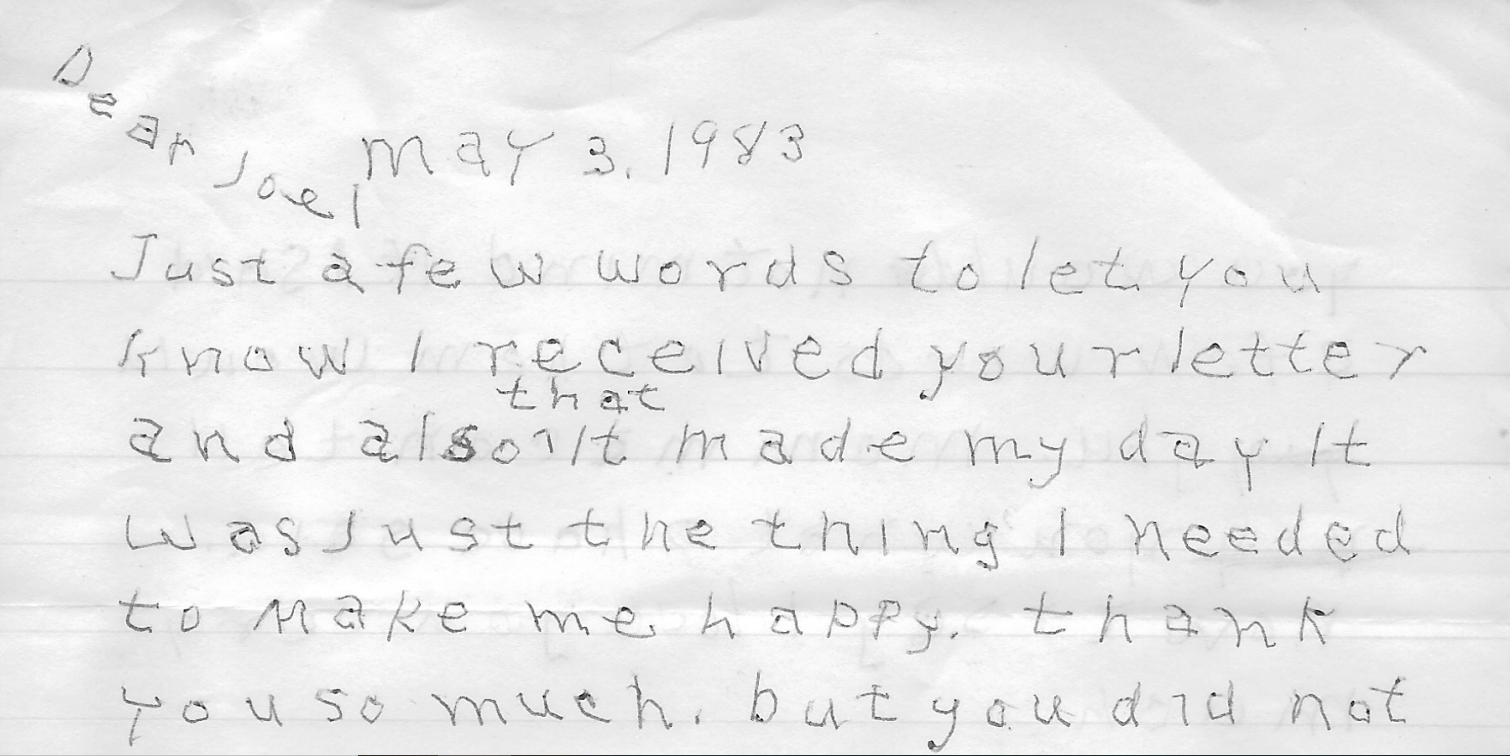 Dear Joel,
May 3. 1983
Just a few words to let you
know I received your letter
that
and also it made my day It
was Just the thing I needed
to make me happy. thank
you so much. but you did not